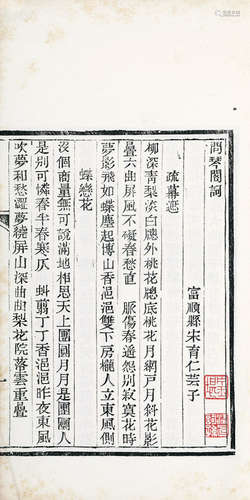 問琴閣詞
富順縣宋育仁芸子
疏幕遮
柳深青梨淡白牕外桃花牕底桃花月網戸月斜花影
疊六曲屏風不礙春愁直 脈傷春遙怨別寂寞花時
夢影飛如蝶塵起博山香浥浥雙下房櫳人立東風側
蝶戀花
沒個商量無可說滿地相思天上團圞月月月是團圞人
是別可憐春半春寒仄 蚪翦丁丁香浥浥昨夜東風
吹夢和愁濕夢繞屏山深曲曲梨花院落雲重疊